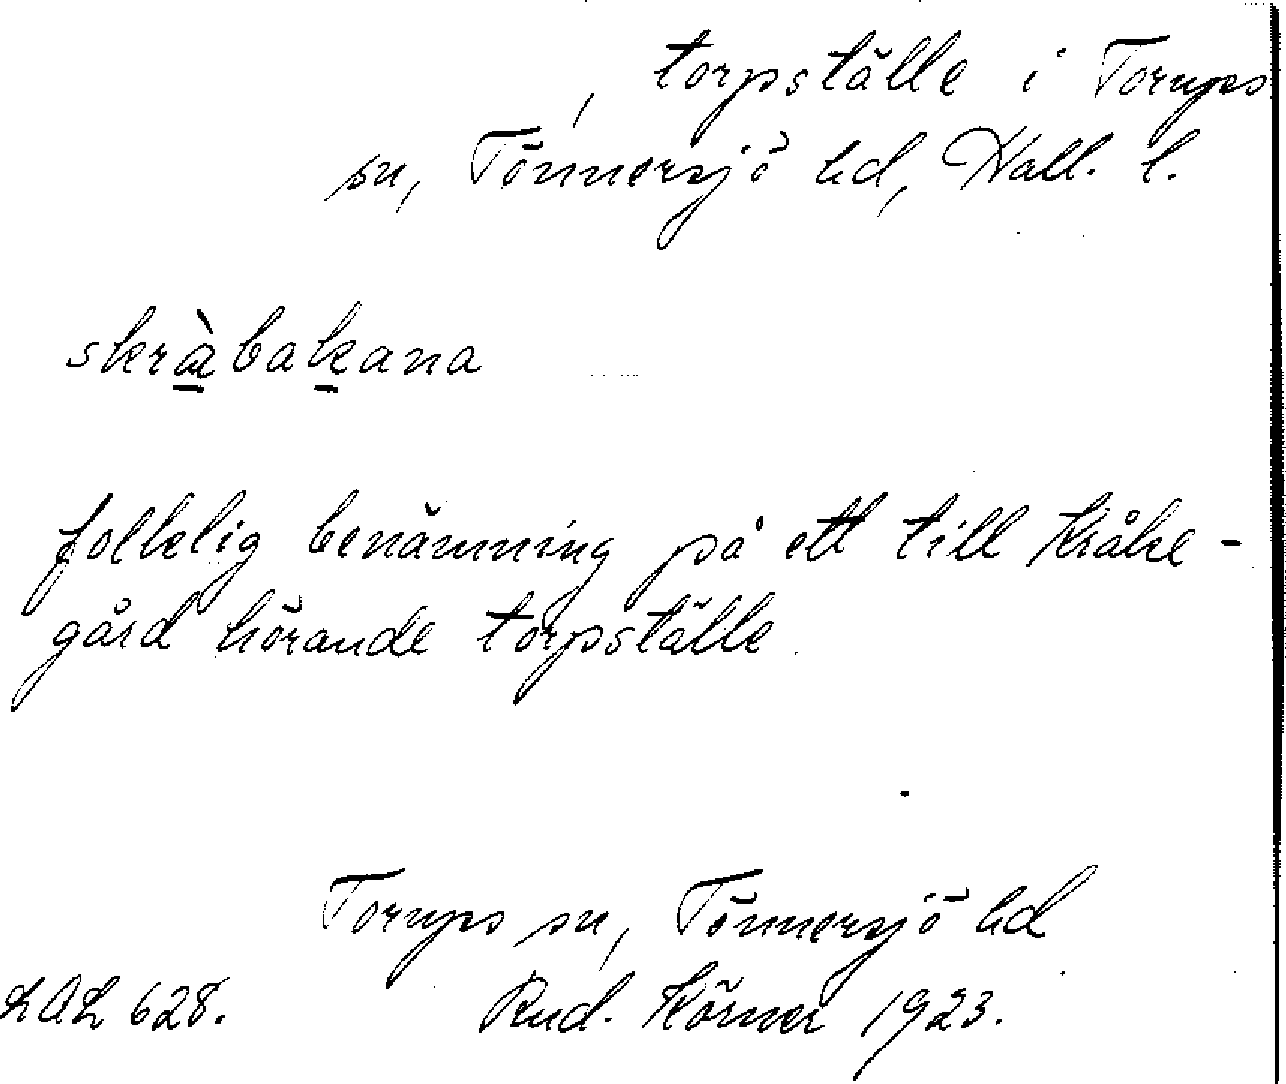 , torpställe i Torups
sn, Tönnersjö hd, Hall. l.
skræ̀bakana
folklig benämning på ett till Kråke-
gård hörande torpställe.
Torups sn, Tönnersjö hd
LAL 628. Rud. Körner 1923.